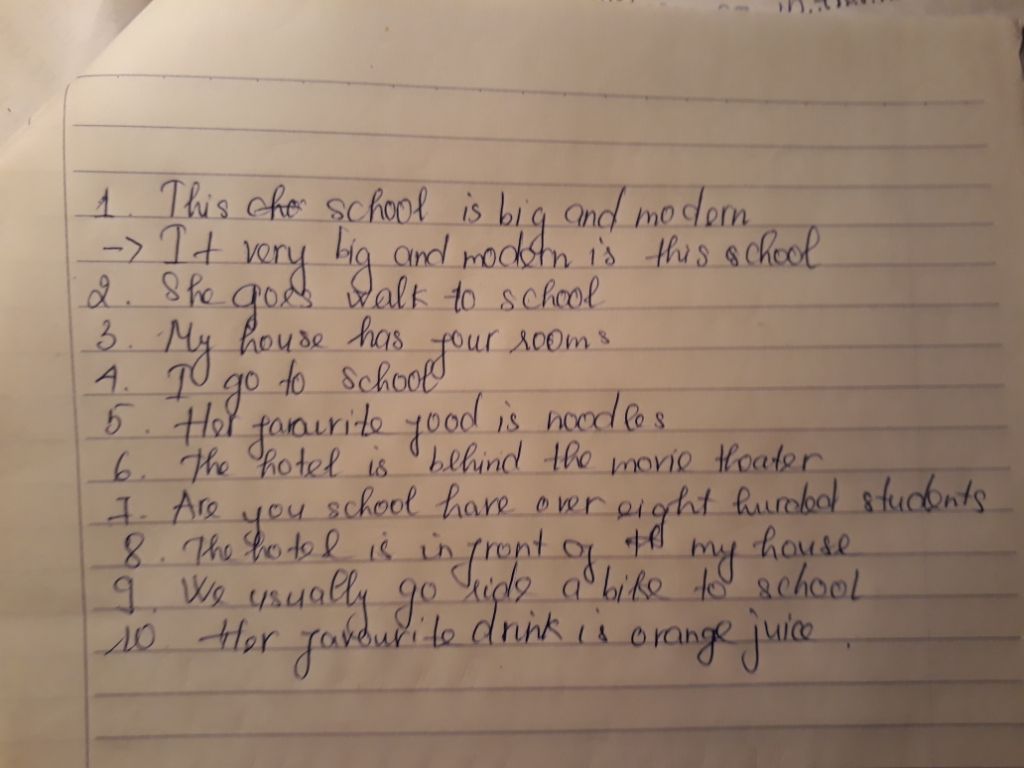 1. This cho school is big and modern
-> It very big and modern is this school
2. She goes walk to school
3. My house has four rooms
4. I go to school
5. Her favaurite food is noodles
6. The hotel is behind the movie theater
7. Are you school have over eight hundred students
8. The hotel is in front of my house
9. We usually go ride a bike to school
10 Her favourite drink is orange juice.